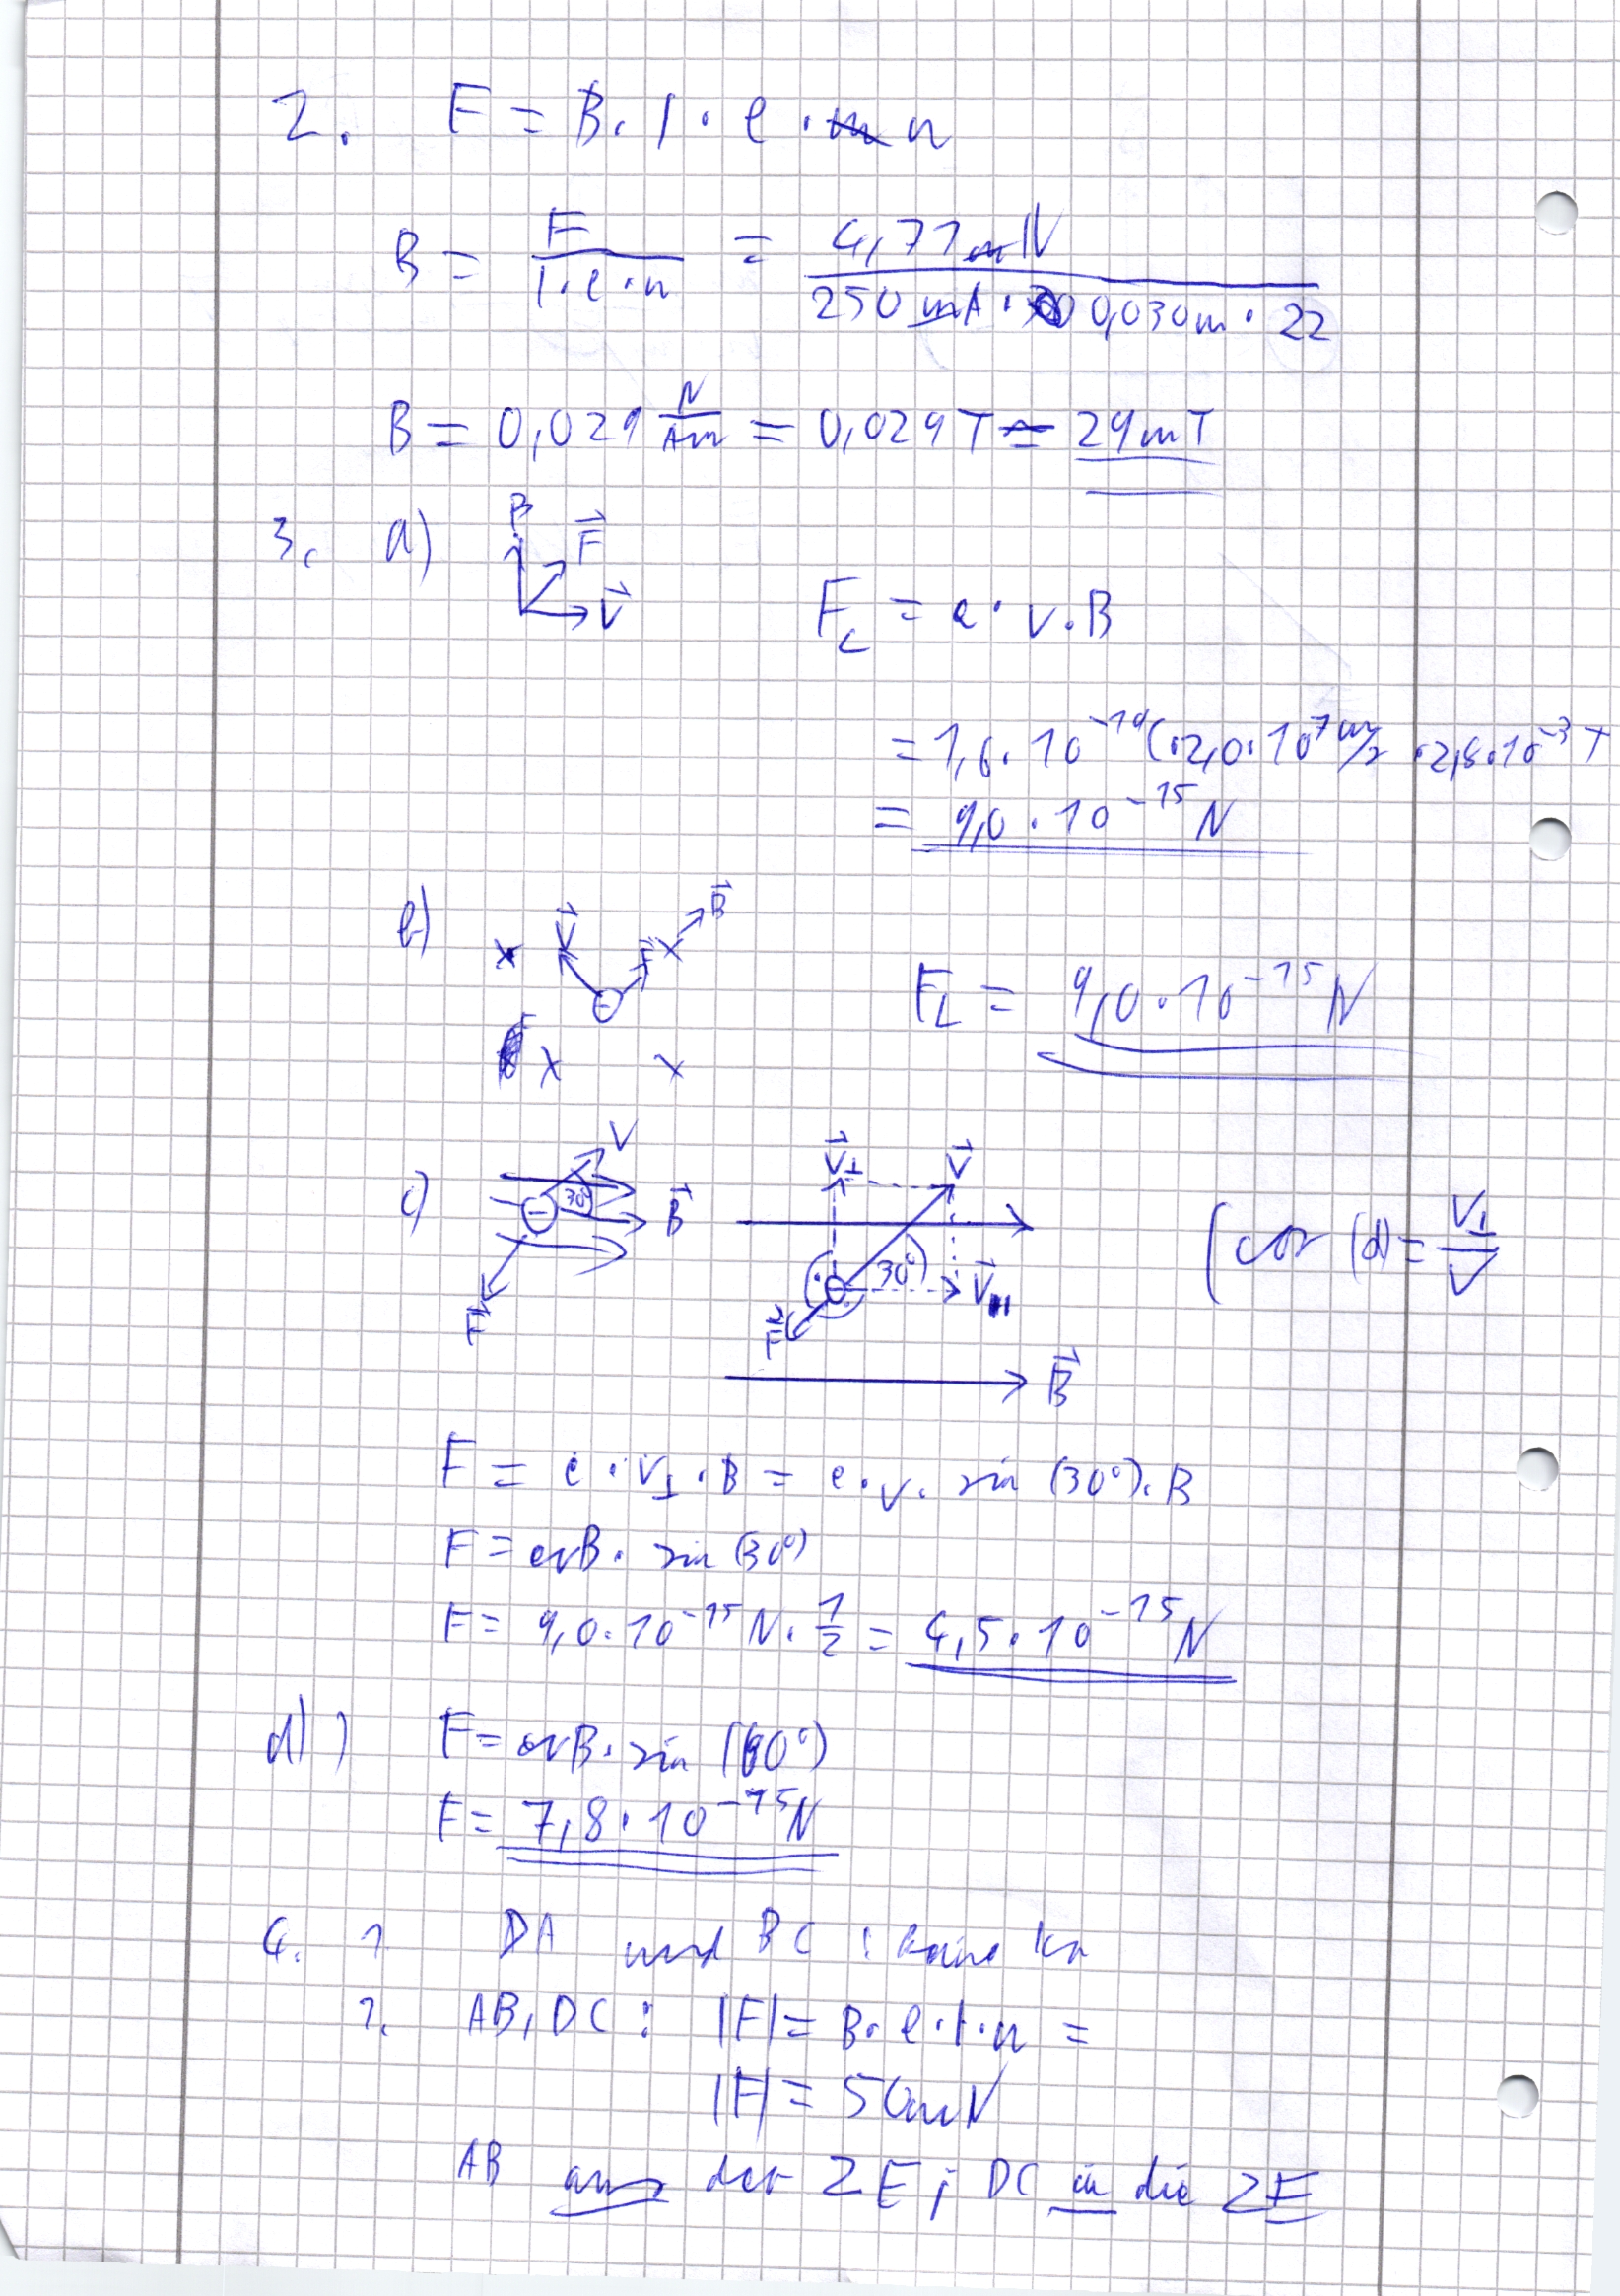 2. F = B · I · l · n
B = F / I · l · n = 4,77 mN / 250 mA · 0,030 m · 22
B = 0,029 N/Am = 0,029 T = 29 mT
3. a) B F⃗ v⃗
F_L = e · v · B
= 1,6 · 10⁻¹⁹ C · 2,0 · 10⁷ m/s · 2,8 · 10⁻³ T
= 9,0 · 10⁻¹⁵ N
b) v⃗ F B⃗
F_L = 9,0 · 10⁻¹⁵ N
c) v 30° B⃗ F⃗
v⃗⊥ v⃗ 30° v⃗∥ F⃗ B⃗
( cos (α) = v⊥ / v
F = e · v⊥ · B = e · v · sin (30°) · B
F = evB · sin (30°)
F = 9,0 · 10⁻¹⁵ N · 1/2 = 4,5 · 10⁻¹⁵ N
d) F = evB · sin (60°)
F = 7,8 · 10⁻¹⁵ N
4. 1. DA und BC : keine
2. AB, DC : |F| = B · l · I · n =
|F| = 50 mN
AB aus der ZE ; DC in die ZE